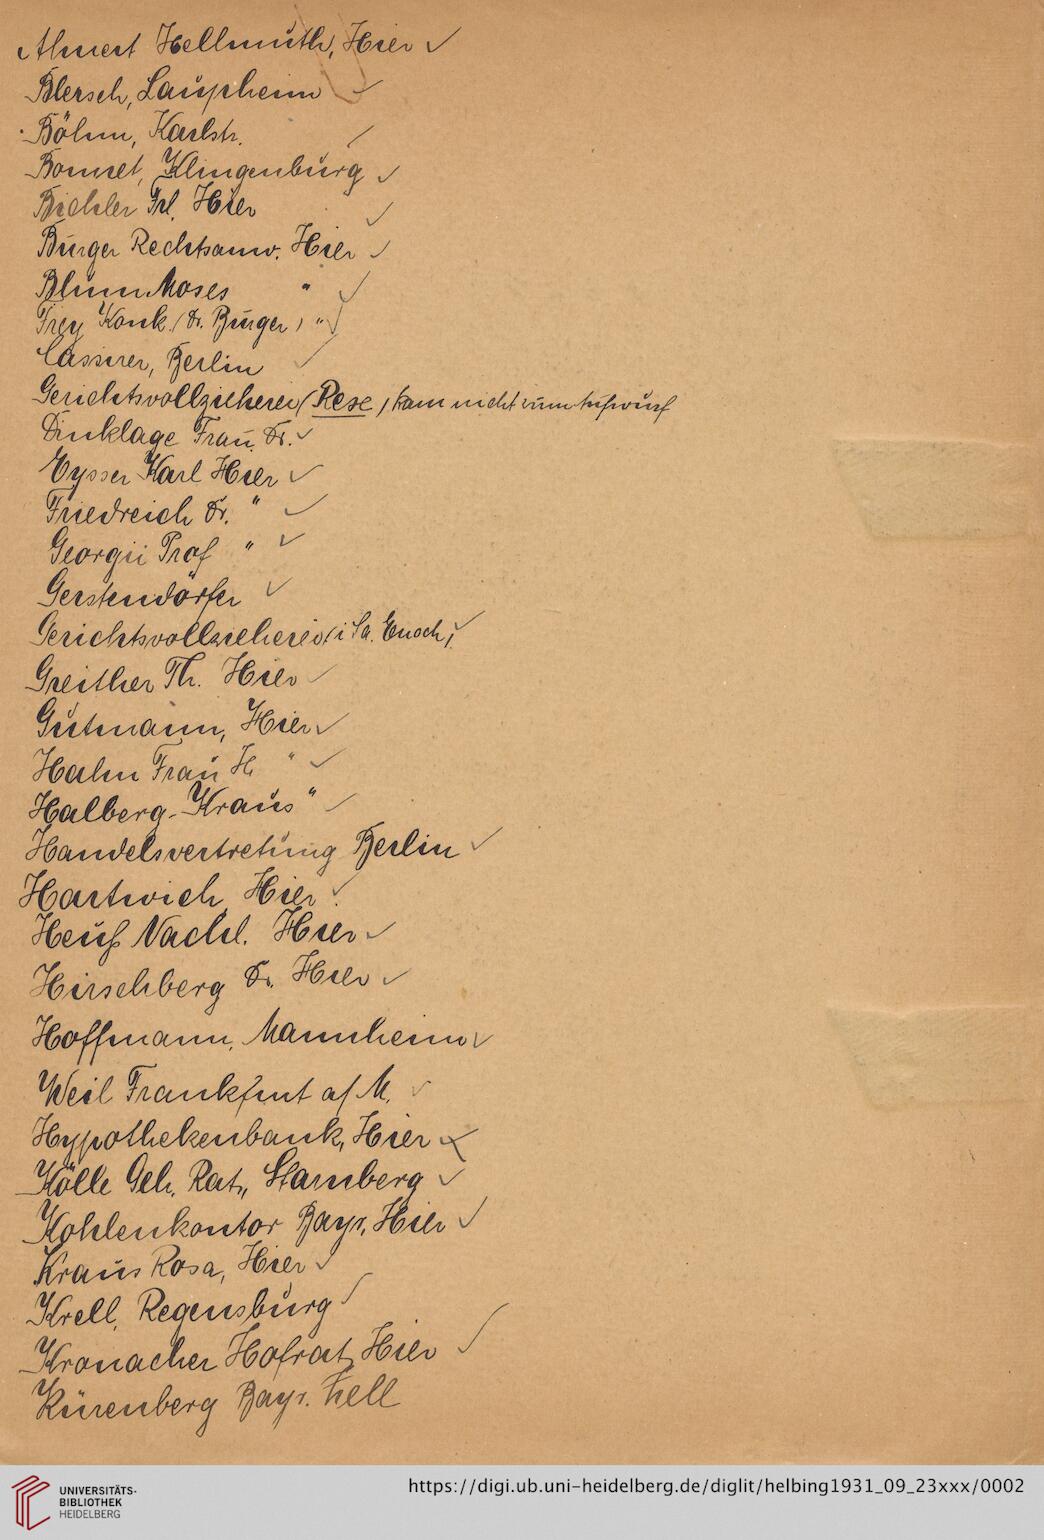 Ahnert Hellmuth, Hier ✓
Blersch, Laupheim ✓
Böhm, Karlstr. ✓
Bonnet, Klingenburg ✓
Bichler Frl. Hier ✓
Burger Rechtsanw. Hier ✓
Blum Moses " ✓
Frey Konk. (Dr. Burger) " ✓
Cassirer, Berlin ✓
Gerichtsvollzieherei (Rese) kam nicht zum Aufwurf
Dinklage Frau Dr. ✓
Eysser Karl Hier ✓
Friedreich Dr. " ✓
Georgii Prof " ✓
Gerstendörfer ✓
Gerichtsvollzieherei (i Sa. Enoch) ✓
Greither Th. Hier ✓
Gutmann, Hier ✓
Hahn Frau H. " ✓
Halberg-Kraus " ✓
Handelsvertretung Berlin ✓
Hartwich, Hier ✓
Heuß Nachl. Hier ✓
Hirschberg Dr. Hier ✓
Hoffmann, Mannheim ✓
Weil Frankfurt a/M. ✓
Hypothekenbank, Hier ✓
Kölle Geh. Rat, Starnberg ✓
Kohlenkontor Bayr. Hier ✓
Kraus Rosa, Hier ✓
Krell, Regensburg ✓
Kronacher Hofrat, Hier ✓
Kürenberg Bayr. Zell
UNIVERSITÄTS-
BIBLIOTHEK
HEIDELBERG
https://digi.ub.uni-heidelberg.de/diglit/helbing1931_09_23xxx/0002